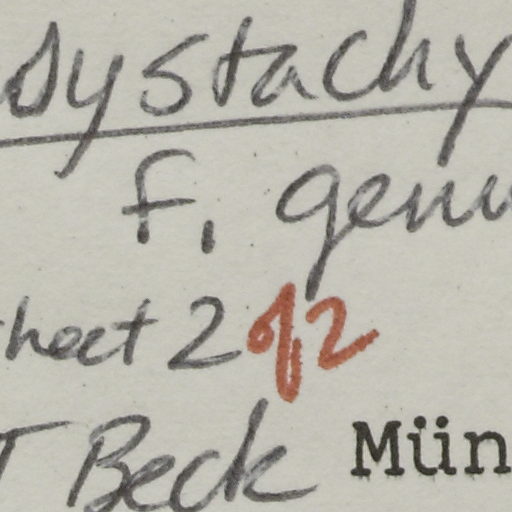 dystachy
f. genu
sheet 2 of 2
T Beck Mün